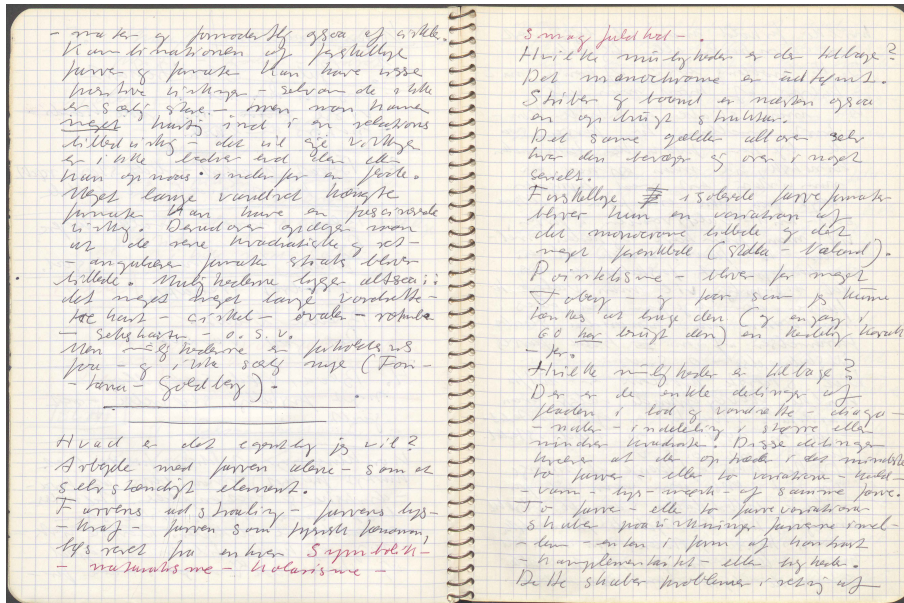 - maler og formodentlig ogsaa af cirkler.
Kombinationen af forskellige
farver og formater kan have visse
positive virkninger - selvom de ikke
er særlig store - men man kommer
meget hurtig ind i en relations
billedvirkning - det vil sige virkningen
er ikke bedre end den der
kan opnaas indenfor en flade.
Meget lange vandret hængte
formater kan have en fascinerende
virkning. Derudover opdager man
at de rene kvadratiske og rekt-
- angulære formater straks bliver
billede. Mulighederne ligger altsaa i:
det meget meget lange vandrette -
- cirkel - ovalen -
- sekskanten - o.s.v.
Men mulighederne er forholdsvis
faa - og ikke særlig nye (Fon-
- tana - Goldberg).
Hvad er det egentlig jeg vil?
Arbejde med farven alene - som et
selvstændigt element.
Farvens udstraaling - farvens lys-
- kraf - farven som fysisk fænomen,
løsrevet fra enhver Symbolik -
- naturalisme - kolorisme -
smagfuldhed - .
Hvilke muligheder er der tilbage?
Det monochrome er udtømt.
Striber og baand er næsten ogsaa
en opbrugt struktur.
Det samme gælder all over selv
hvor den bevæger sig over i noget
serielt.
Forskellige isolerede farveformater
bliver kun en variation af
det monocrome billede og det
meget forenklede (Stella - Noland).
Pointelisme - bliver for meget
Tobey - og for som jeg kunne
tænkes at bruge den (og engang i
60 har brugt den) en kedelig karak
- ter.
Hvilke muligheder er tilbage?
Der er de enkle delinger af
fladen i lod og vandrette - diago-
- naler - inddeling i større eller
mindre kvadrater. Disse delinger
kræver at der optræder i det mindste
to farver - eller to variationer - kold -
- varm - lys - mørk - af samme farve.
To farver - eller to farvevariationer
skaber paavirkninger farverne imel-
- lem - enten i form af kontrast
- komplementaritet - eller lighed.
Dette skaber problemer i retning af